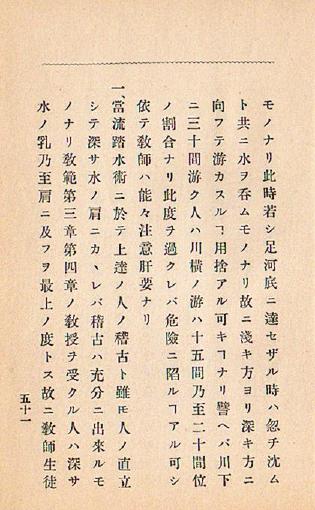 モノナリ此時若シ足河底ニ達セザル時ハ忽チ沈ム
ト共ニ水ヲ呑ムモノナリ故ニ淺キ方ヨリ深キ方ニ
向フテ游カスルヿ用捨アル可キヿナリ譬ヘバ川下
ニ三十間游ク人ハ川横ノ游ハ十五間乃至二十間位
ノ割合ナリ此度ヲ過クレバ危險ニ陷ルヿアル可シ
依テ敎師ハ能々注意肝要ナリ
一、當流踏水術ニ於テ上達ノ人ノ稽古ト雖𪜈人ノ直立
シテ深サ水ノ肩ニカヽレバ稽古ハ充分ニ出來ルモ
ノナリ敎範第三章第四章ノ敎授ヲ受クル人ハ深サ
水ノ乳乃至肩ニ及フヲ最上ノ度トス故ニ敎師生徒
五十一